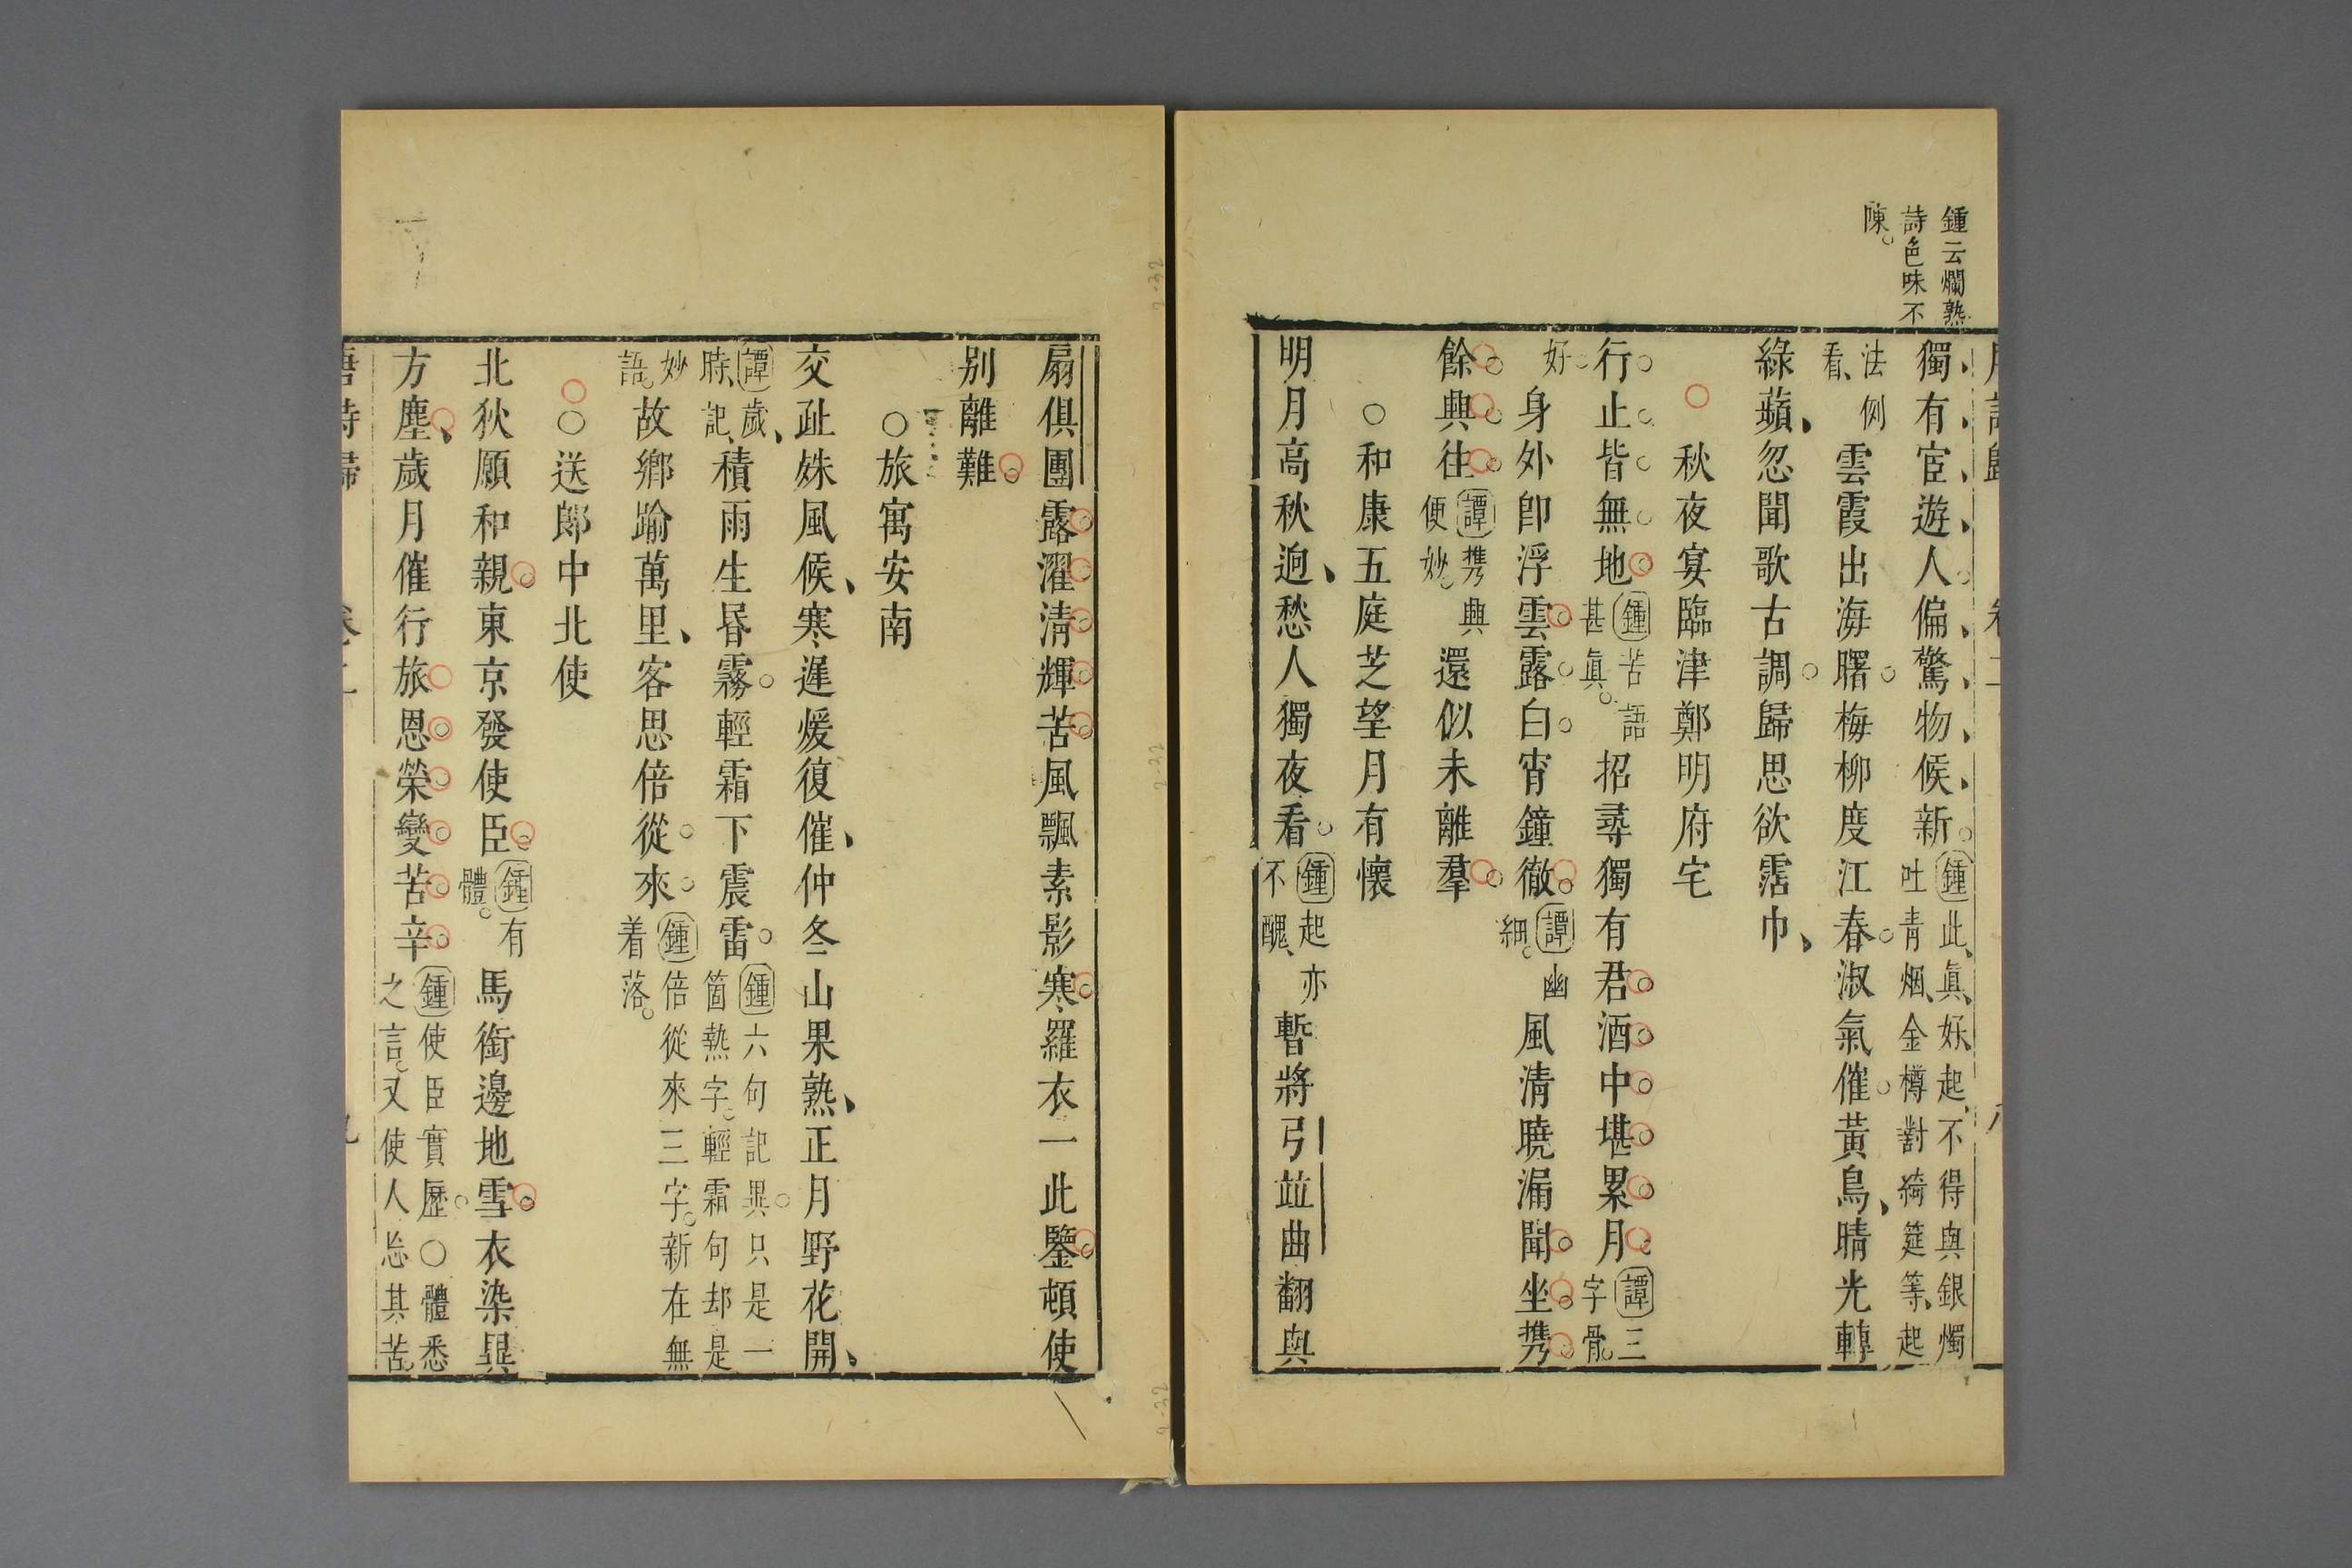 鍾云爛熟
詩色味不
陳。
獨有宦遊人偏驚物候新。鍾此真好起不得與銀燭吐青烟金樽對綺筵等起
法例看雲霞出海曙梅柳度江春淑氣催黃鳥晴光轉
綠蘋忽聞歌古調歸思欲霑巾
秋夜宴臨津鄭明府宅
行止皆無地鍾苦語甚真。招尋獨有君酒中堪累月譚三字骨。
好身外卽浮雲露白宵鐘徹譚幽細。風清曉漏聞坐携
餘興往譚携興便妙。還似未離羣
○和康五庭芝望月有懷
明月高秋迥愁人獨夜看鍾起亦不醜暫將弓竝曲翻與
扇俱團露濯清輝苦風飄素影寒羅衣一此鑒頓使
別離難
○旅寓安南
交趾殊風候寒遲煖復催仲冬山果熟正月野花開
譚歲時記積雨生昏霧輕霜下震雷鍾六句記異只是一箇熱字。輕霜句却是
妙語。故鄉踰萬里客思倍從來鍾倍從來三字。新在無着落。
○送郎中北使
北狄願和親東京發使臣鍾有體。馬銜邊地雪衣染異
方塵歲月催行旅恩榮變苦辛鍾使臣實歷○體悉之言。又使人忘其苦。
唐詩歸 卷二 九